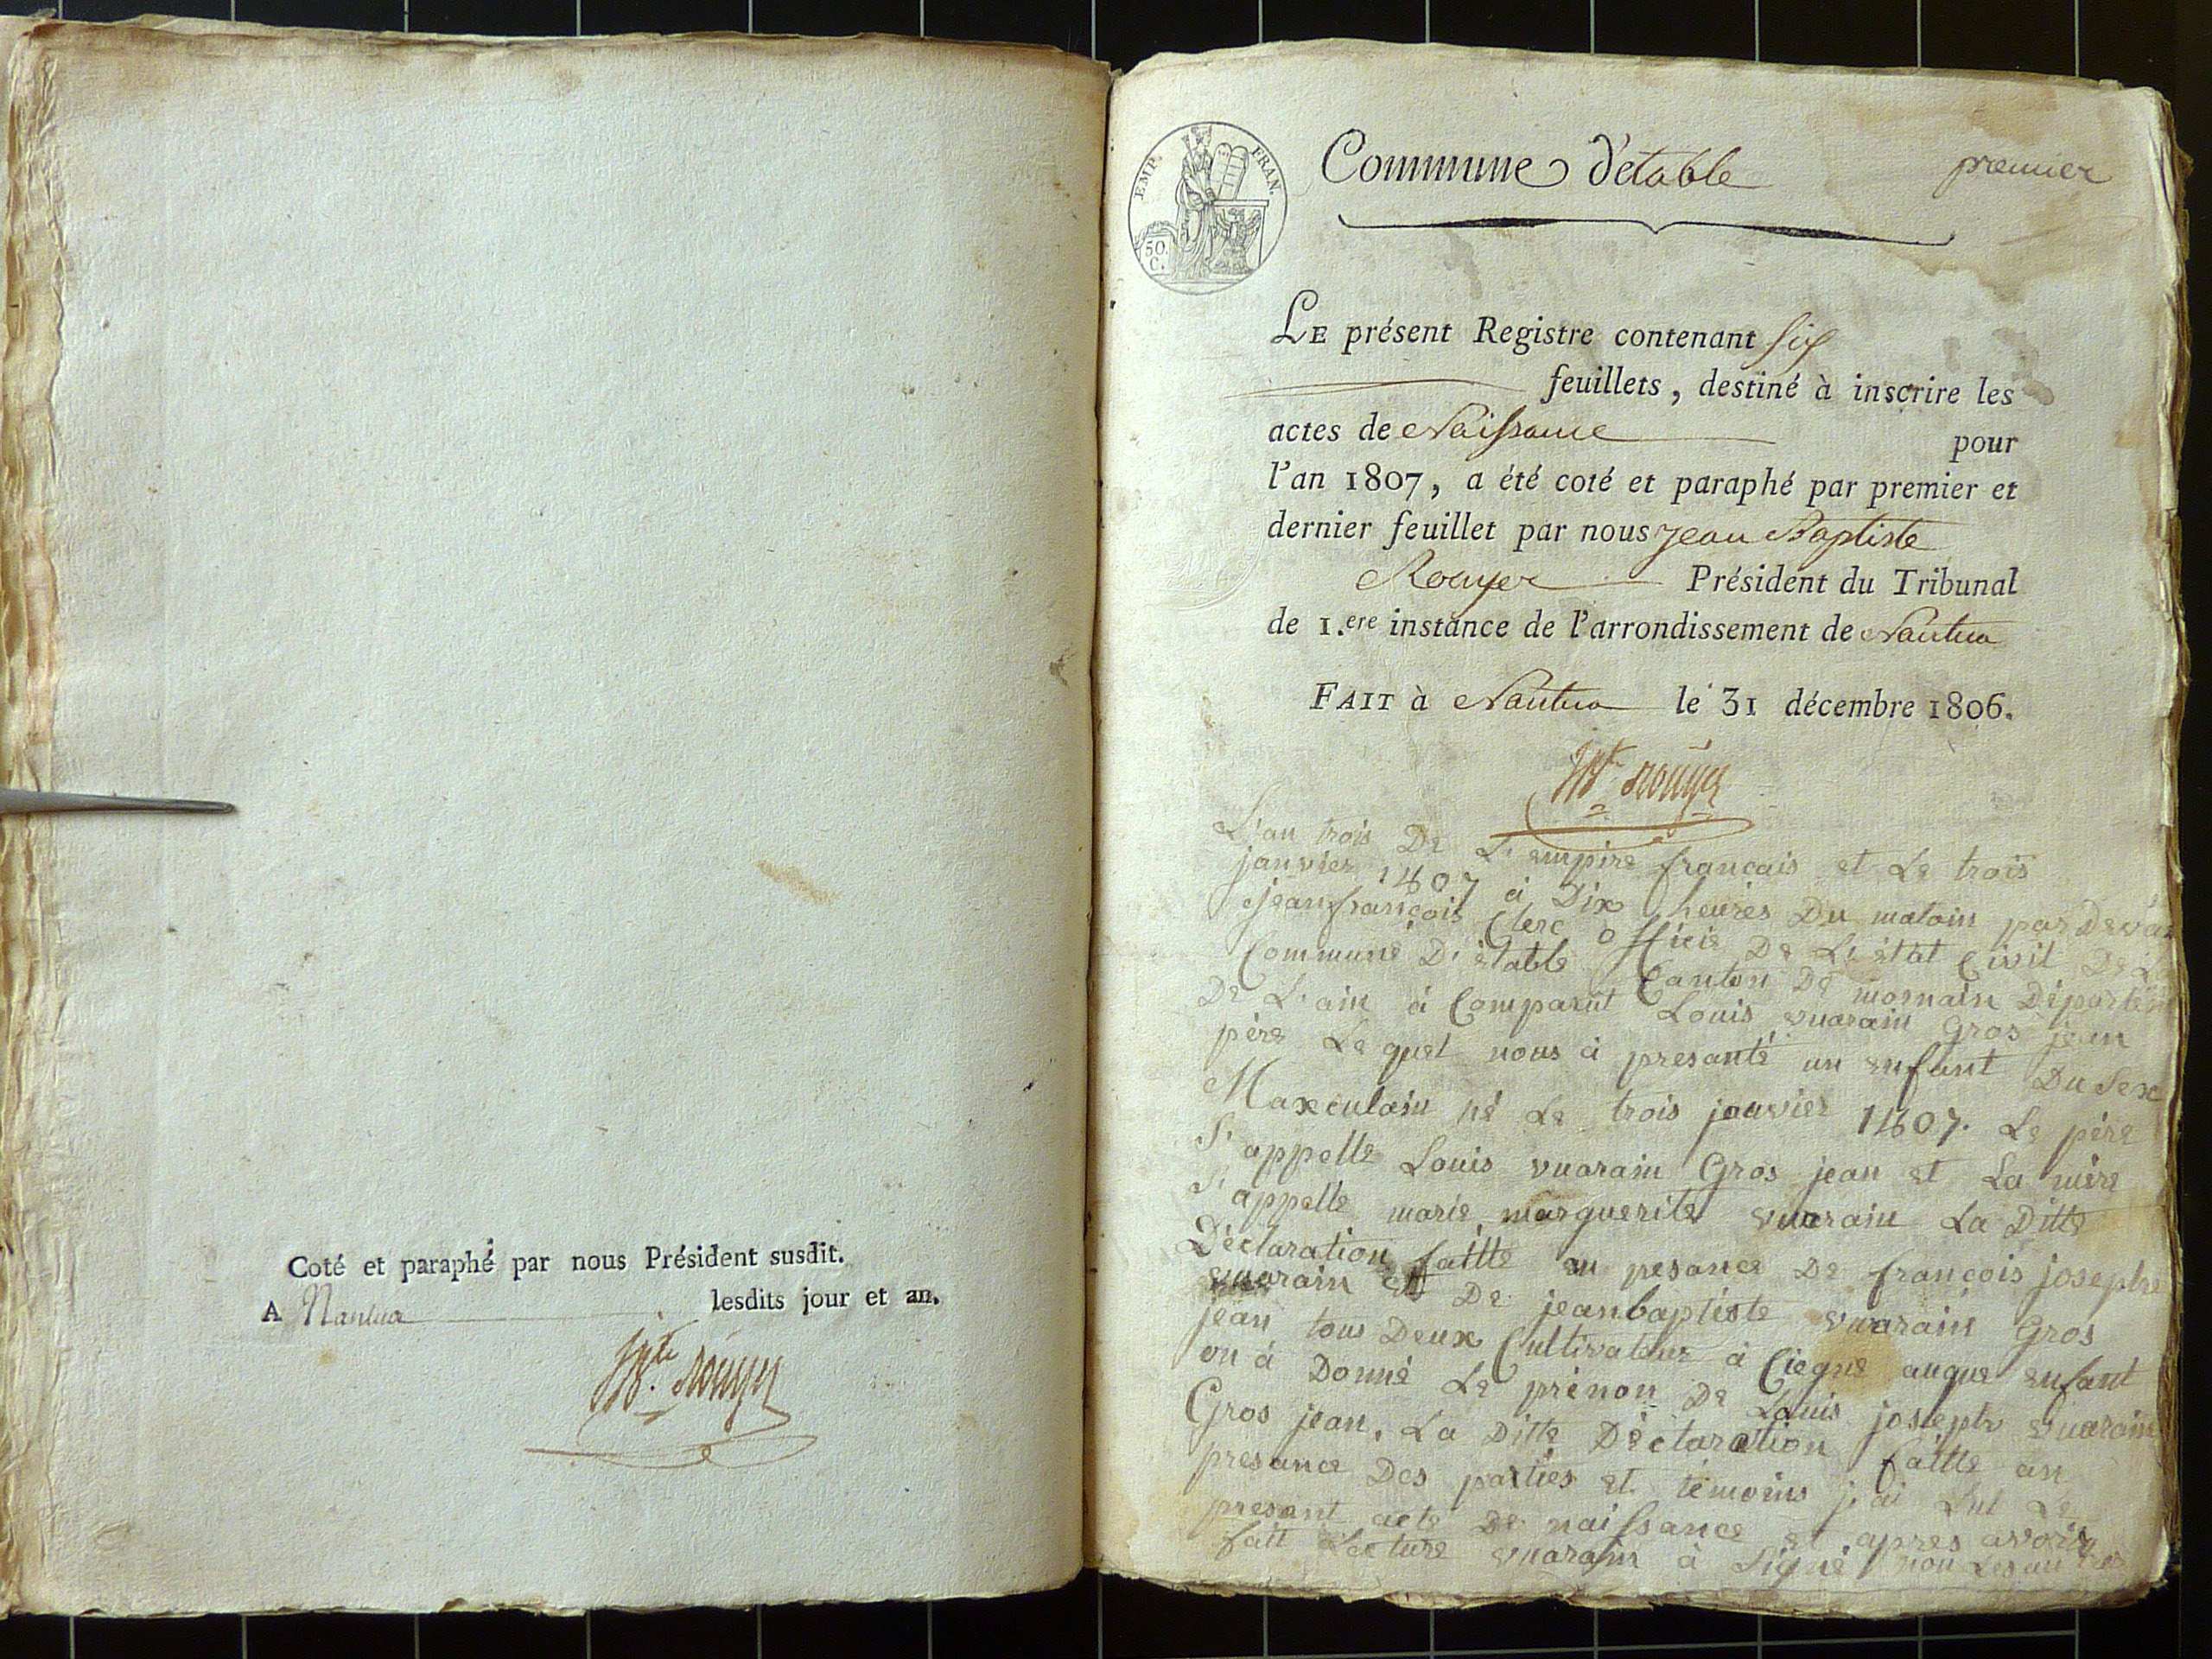 Coté et paraphé par nous Président susdit.
A Nantua lesdits jour et an.
JBte. Rouyer
EMP. FRAN.
50. C.
Commune d'etable
premier
LE présent Registre contenant six
feuillets, destiné à inscrire les
actes de Naissance pour
l'an 1807, a été coté et paraphé par premier et
dernier feuillet par nous Jean Baptiste
Rouyer Président du Tribunal
de 1.ere instance de l'arrondissement de Nantua
FAIT à Nantua le 31 décembre 1806.
JBte Rouyer
L'an trois De L'empire francais et Le trois
janvier 1807 à Dix heures Du matain par Devan
jeanfrançois Clerc officie De L'état Civil De La
Commune D'étable Canton De mornain Départem
De L'ain à Comparut Louis vuarain Gros jean
père Le quel nous à presanté un enfant Du Sexe
Maxculain né Le trois janvier 1807. Le père
S'appelle Louis vuarain Gros jean et La mère
S'appelle marie marguerite vuarain La Ditte
Déclaration faitte en pesance De françois josephe
vuarain et De jeanbaptiste vuarain Gros
jean tous Deux Cultivateur à Ciegne auque enfant
on à Donné Le prénon De Louis joseph vuarain
Gros jean. La Ditte Déclaration faitte an
presance Des parties et témoins j'ai
presant acte De naissance et apres avoir
fait Lecture vuarain à Signé non Les autres